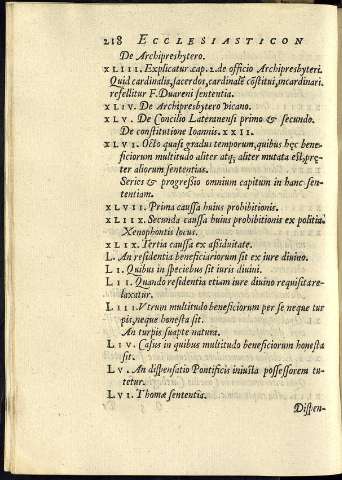 218 ECCLESIASTICON
De Archipresbytero.
XLIII. Explicatur cap. 2. de officio Archipresbyteri.
Quid cardinalis, sacerdos, cardinalē cōstitui, incardinari.
refellitur F. Duareni sententia.
XLIV. De Archipresbytero vicano.
XLV. De Concilio Lateranensi primo & secundo.
De constitutione Ioannis. XXII.
XLVI. Octo quasi gradus temporum, quibus hęc bene-
ficiorum multitudo aliter atq; aliter mutata est, prę-
ter aliorum sententias.
Series & progressio omnium capitum in hanc sen-
tentiam.
XLVII. Prima caussa huius prohibitionis.
XLIIX. Secunda caussa huius prohibitionis ex politia.
Xenophontis locus.
XLIX. Tertia caussa ex assiduitate.
L. An residentia beneficiariorum sit ex iure diuino.
LI. Quibus in speciebus sit iuris diuini.
LII. Quando residentia etiam iure diuino requisita re-
laxatur.
LIII. Vtrum multitudo beneficiorum per se neque tur
pis, neque honesta sit.
An turpis suapte natura.
LIV. Casus in quibus multitudo beneficiorum honesta
sit.
LV. An dispensatio Pontificis iniusta possessorem tu-
tetur.
LVI. Thomæ sententia.
Dispen-